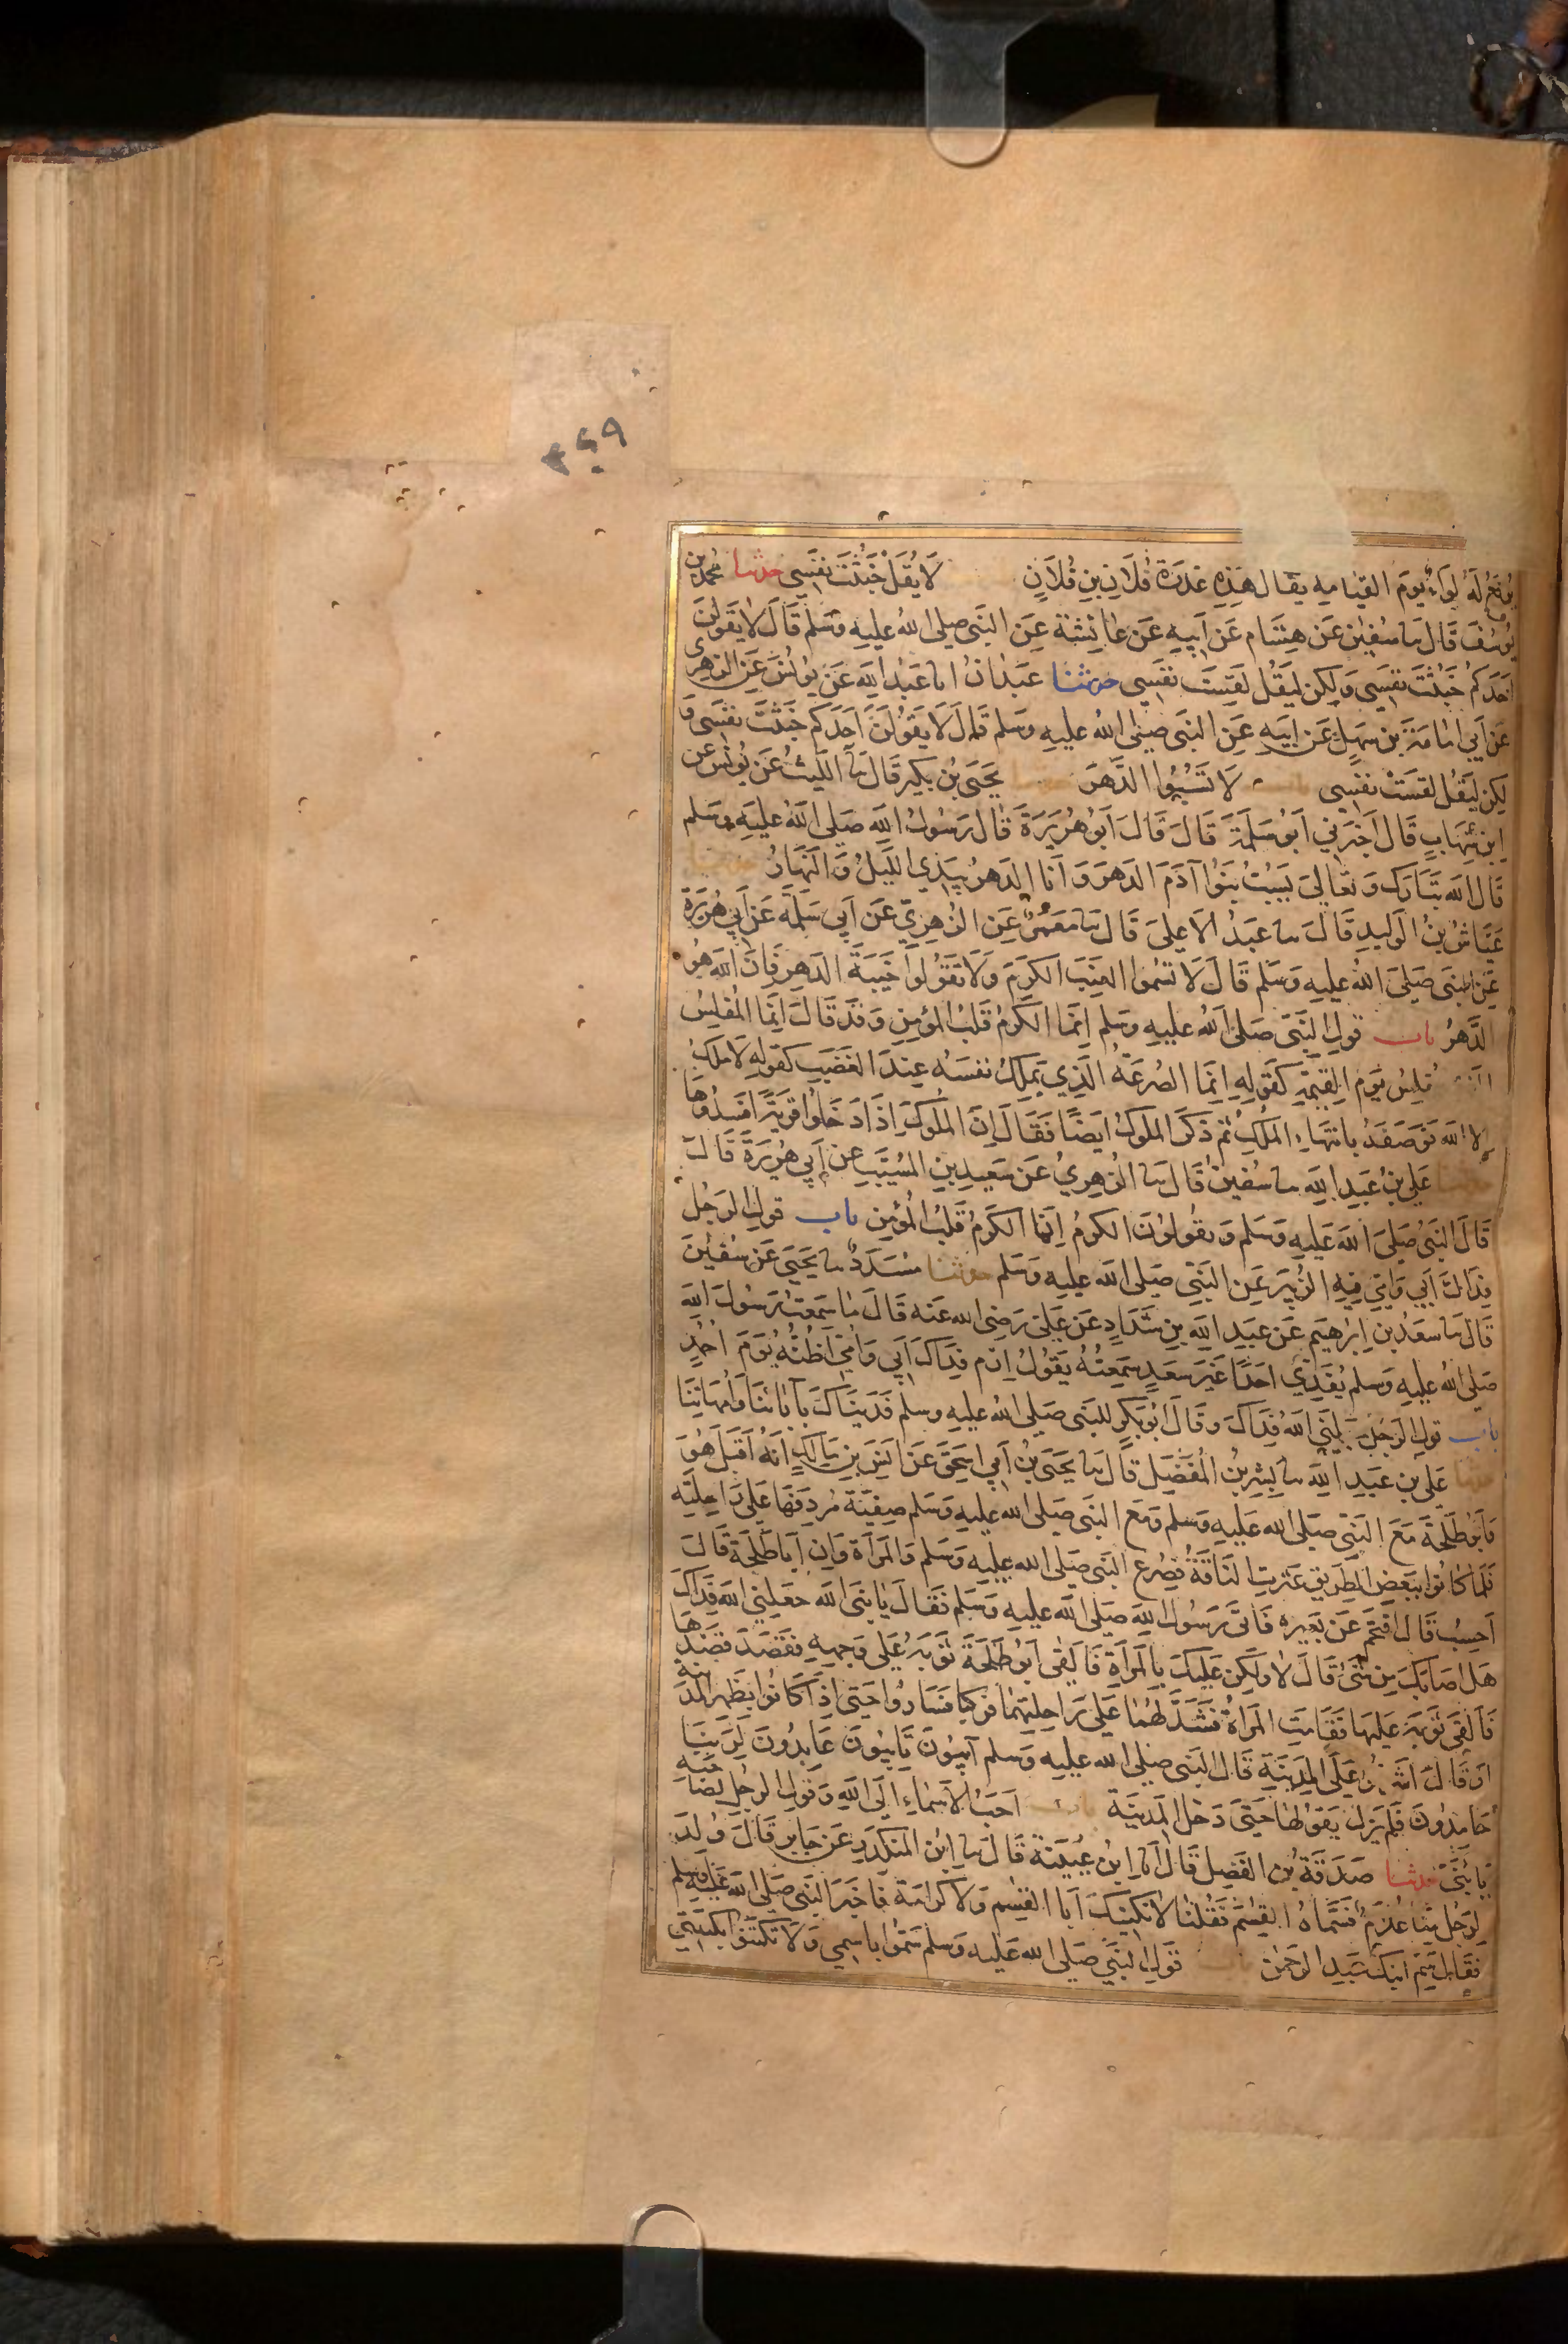 ۳۶۹
يرفع له لواء يوم القيامه يقال هذه غدرة فلان بن فلان لا يقل خبثت نفسي حدثنا محمد بن
يوسف قال نا سفين عن هشام عن ابيه عن عائشة عن النبي صلى الله عليه وسلم قال لا يقولن
احدكم خبثت نفسي ولكن ليقل لقست نفسي حدثنا عبدان انا عبد الله عن يونس عن الزهري
عن ابي امامة بن سهل عن ابيه عن النبي صلى الله عليه وسلم قال لا يقولن احدكم خبثت نفسي و
لكن ليقل لقست نفسي باب لا تسبوا الدهر يحيى بن بكير قال نا الليث عن يونس عن
ابن شهاب قال اخبرني ابو سلمة قال قال ابو هريرة قال رسول الله صلى الله عليه وسلم
قال الله تبارك وتعالى يسب بنوا آدم الدهر وانا الدهر بيدي الليل والنهار حدثنا
عياش بن الوليد قال نا عبد الاعلى قال نا معمر عن الزهري عن ابي سلمة عن ابي هريرة
عن النبي صلى الله عليه وسلم قال لا تسموا العنب الكرم ولا تقولوا خيبة الدهر فان الله هو
الدهر باب قول النبي صلى الله عليه وسلم انما الكرم قلب المؤمن وقد قال انما المفلس
يفلس يوم القيمة كقوله انما الصرعة الذي يملك نفسه عند الغضب كقوله لا ملك
الا الله فوصفه بانتهاء الملك ثم ذكر الملوك ايضا فقال ان الملوك اذا دخلوا قرية افسدوها
حدثنا علي بن عبد الله نا سفين قال نا الزهري عن سعيد بن المسيب عن ابي هريرة قال
قال النبي صلى الله عليه وسلم ويقولون الكرم انما الكرم قلب المؤمن باب قول الرجل
فداك ابي وامي فيه الزبير عن النبي صلى الله عليه وسلم حدثنا مسدد نا يحيى عن سفين
قال نا سعد بن ابرهيم عن عبد الله بن شداد عن علي رضي الله عنه قال ما سمعت رسول الله
صلى الله عليه وسلم يفدي احدا غير سعد سمعته يقول ارم فداك ابي وامي اظنه يوم احد
باب قول الرجل جعلني الله فداك وقال ابو بكر للنبي صلى الله عليه وسلم فديناك بآبائنا وامهاتنا
حدثنا علي بن عبد الله نا بشر بن المفضل قال نا يحيى بن ابي اسحق عن انس بن مالك انه اقبل هو
وابو طلحة مع النبي صلى الله عليه وسلم ومع النبي صلى الله عليه وسلم صفية مردفها على راحلته
فلما كانوا ببعض الطريق عثرت الناقة فصرع النبي صلى الله عليه وسلم والمرأة وان ابا طلحة قال
احسب قال اقتحم عن بعيره فاتى رسول الله صلى الله عليه وسلم فقال يا نبي الله جعلني الله فداك
هل اصابك من شيء قال لا ولكن عليك بالمرأة فالقى ابو طلحة ثوبه على وجهه فقصد قصدها
فالقى ثوبه عليها فقامت المرأة فشد لهما على راحلتهما فركبا فساروا حتى اذا كانوا بظهر المدينة
او قال اشرفوا على المدينة قال النبي صلى الله عليه وسلم آيبون تايبون عابدون لربنا
حامدون فلم يزل يقولها حتى دخل المدينة باب احب الاسماء الى الله وقول الرجل لصاحبه
يا بني حدثنا صدقة بن الفضل قال انا ابن عيينة قال نا ابن المنكدر عن جابر قال ولد
لرجل منا غلام فسماه القسم فقلنا لا نكنيك ابا القسم ولا كرامة فاخبر النبي صلى الله عليه وسلم
فقال سم ابنك عبد الرحمن باب قول النبي صلى الله عليه وسلم سموا باسمي ولا تكتنوا بكنيتي